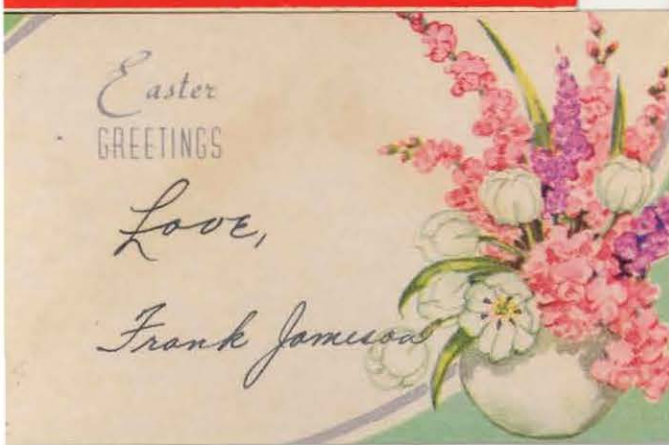 Easter
GREETINGS
Love,
Frank Jameson